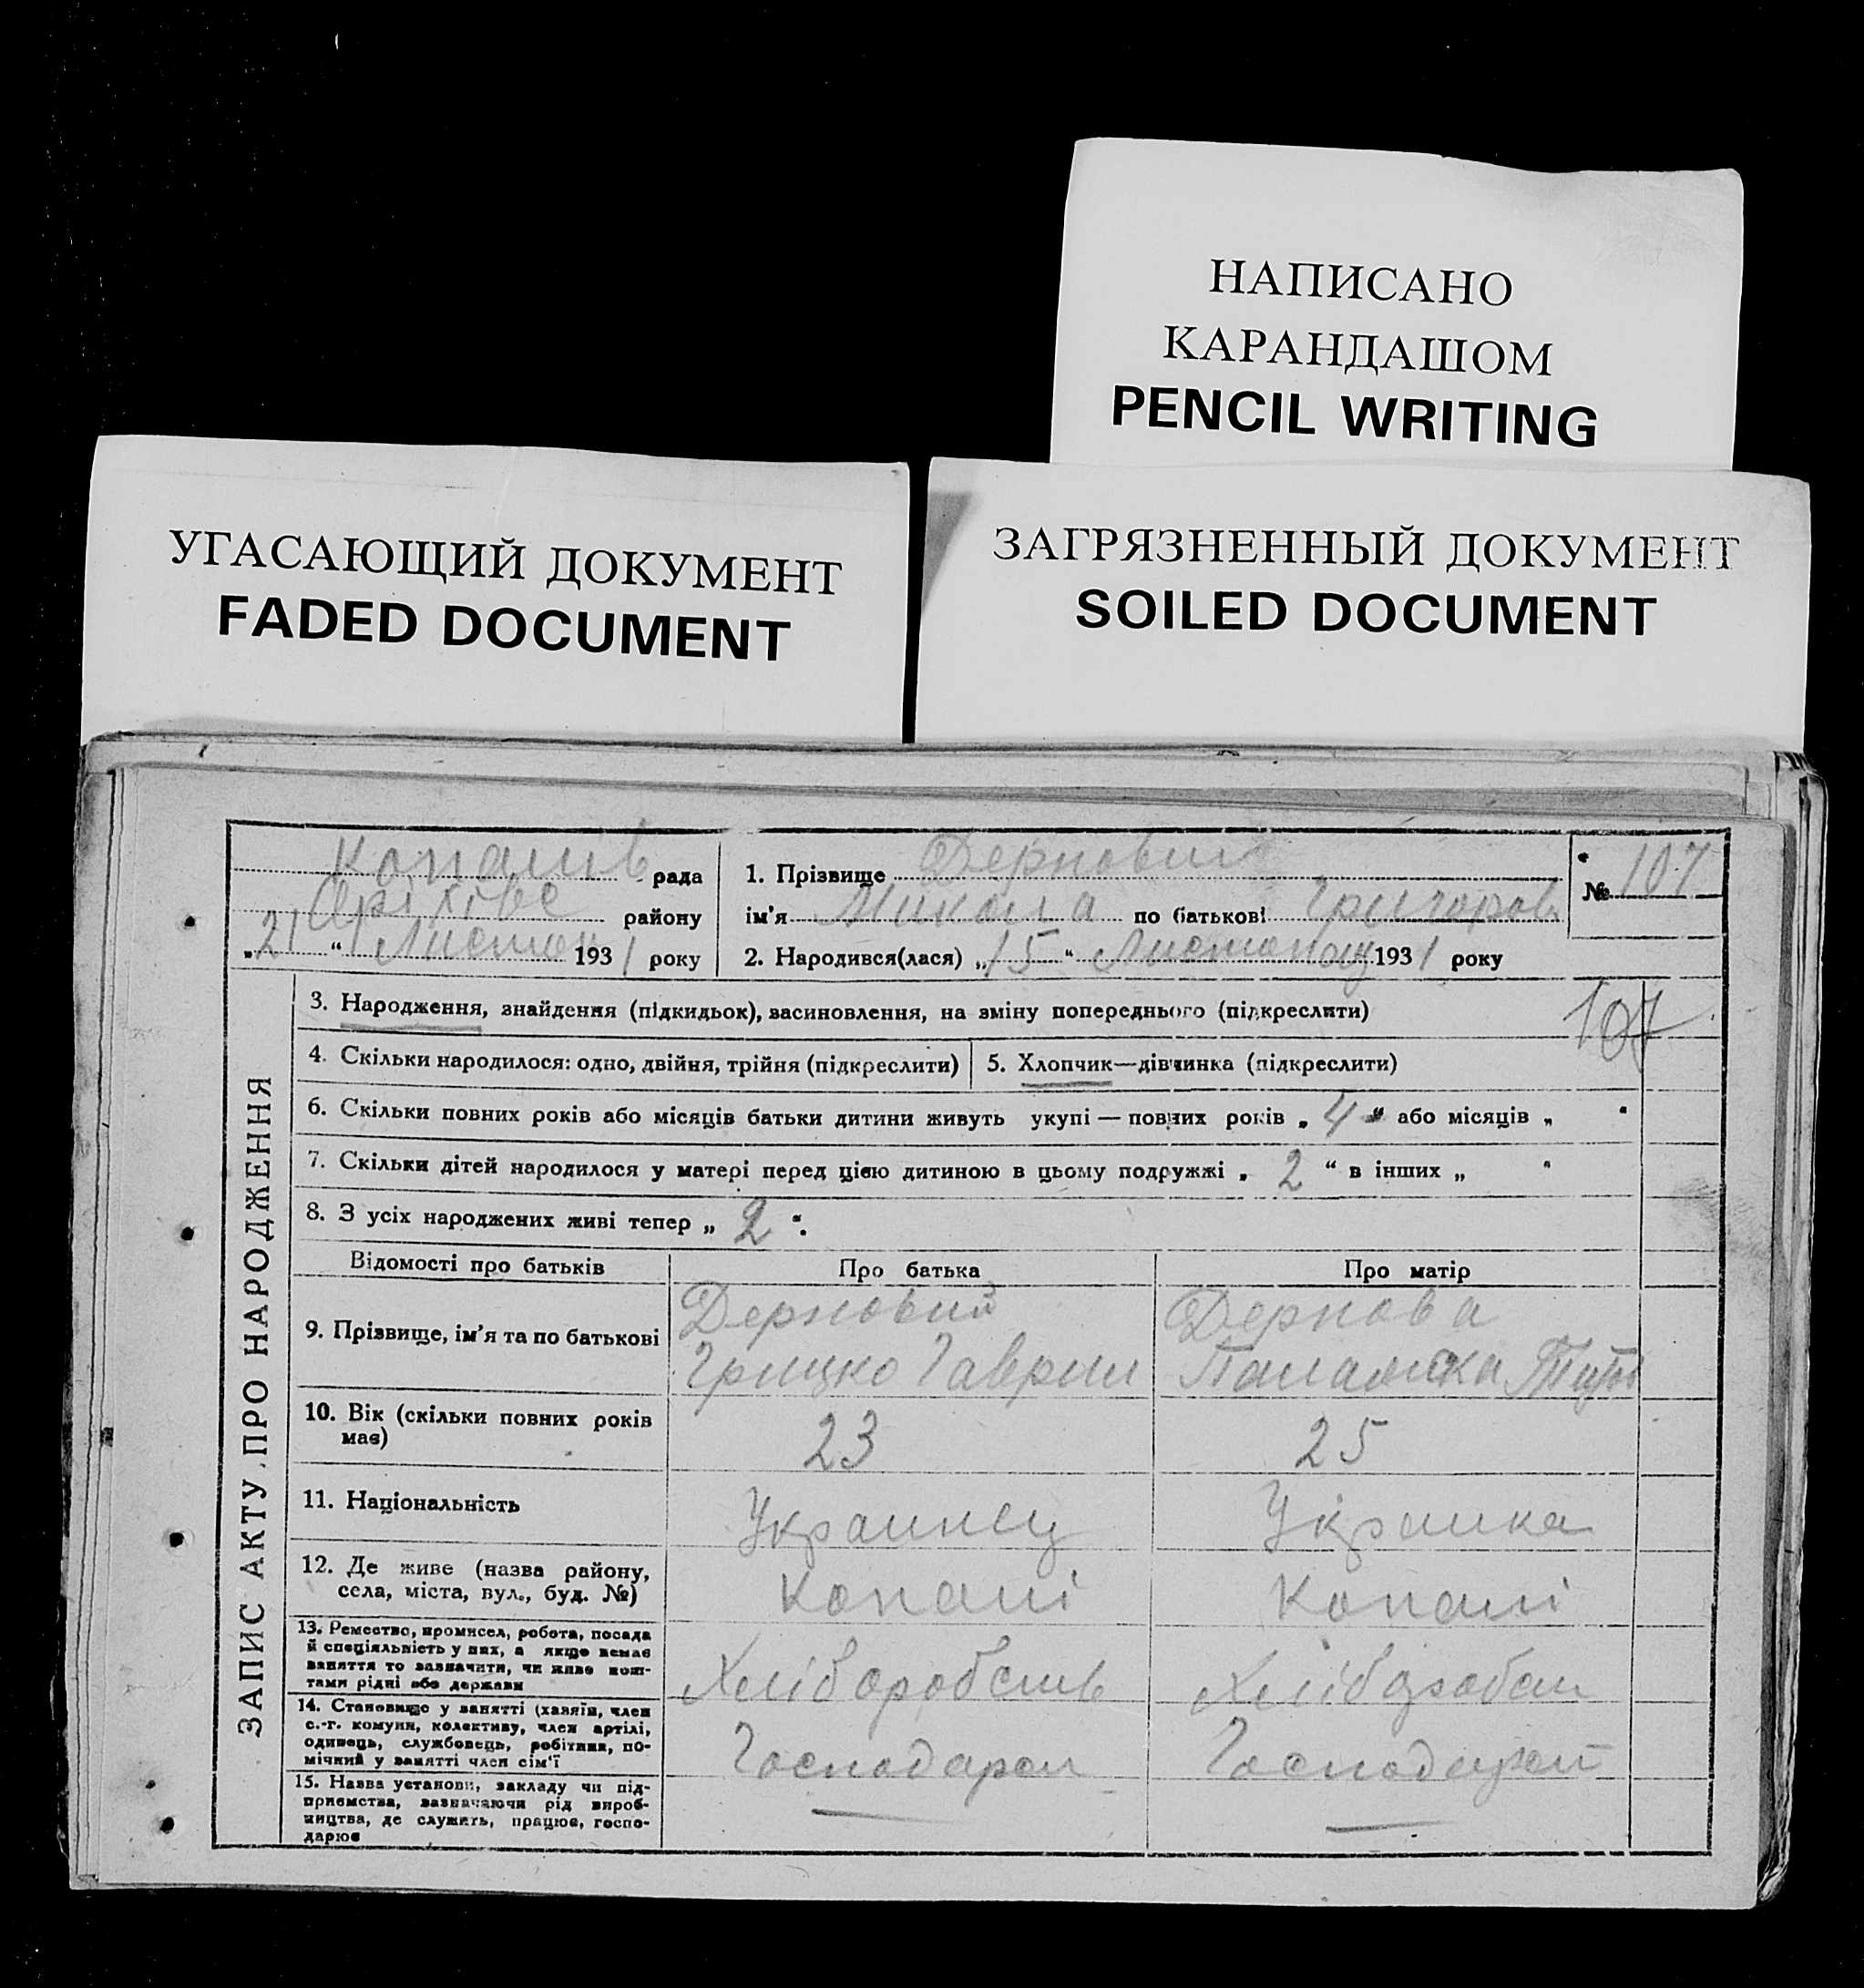 НАПИСАНО
КАРАНДАШОМ
PENCIL WRITING
УГАСАЮЩИЙ ДОКУМЕНТ
FADED DOCUMENT
ЗАГРЯЗНЕННЫЙ ДОКУМЕНТ
SOILED DOCUMENT
рада
району
„21“ 1931 року
1. Прізвище Дерновий
ім'я Микола по батькові Григоров
2. Народився(лася) „15“ Листопад 1931 року
№ 107
107
ЗАПИС АКТУ ПРО НАРОДЖЕННЯ
3. Народження, знайдення (підкидьок), засиновлення, на зміну попереднього (підкреслити)
4. Скільки народилося: одно, двійня, трійня (підкреслити)
5. Хлопчик—дівчинка (підкреслити)
6. Скільки повних років або місяців батьки дитини живуть укупі — повних років „4“ або місяців „ “
7. Скільки дітей народилося у матері перед цією дитиною в цьому подружжі „2“ в інших „ “
8. З усіх народжених живі тепер „2“.
Відомості про батьків Про батька Про матір
9. Прізвище, ім'я та по батькові
Дерновий
Грицко Гаврил
Дернова
10. Вік (скільки повних років
має)
23 25
11. Національність
Украинец
12. Де живе (назва району,
села, міста, вул., буд. №)
Копані Копані
13. Ремество, промисел, робота, посада
й спеціяльність у них, а якщо немає
заняття то зазначити, чи живе кош-
тами рідні або держави
14. Становище у занятті (хазяїн, член
с.-г. комуни, колективу, член артілі,
одинець, службовець, робітник, по-
мічний у занятті член сім'ї
15. Назва установи, закладу чи під-
приємства, зазначаючи рід вироб-
ництва, де служить, працює, госпо-
дарює